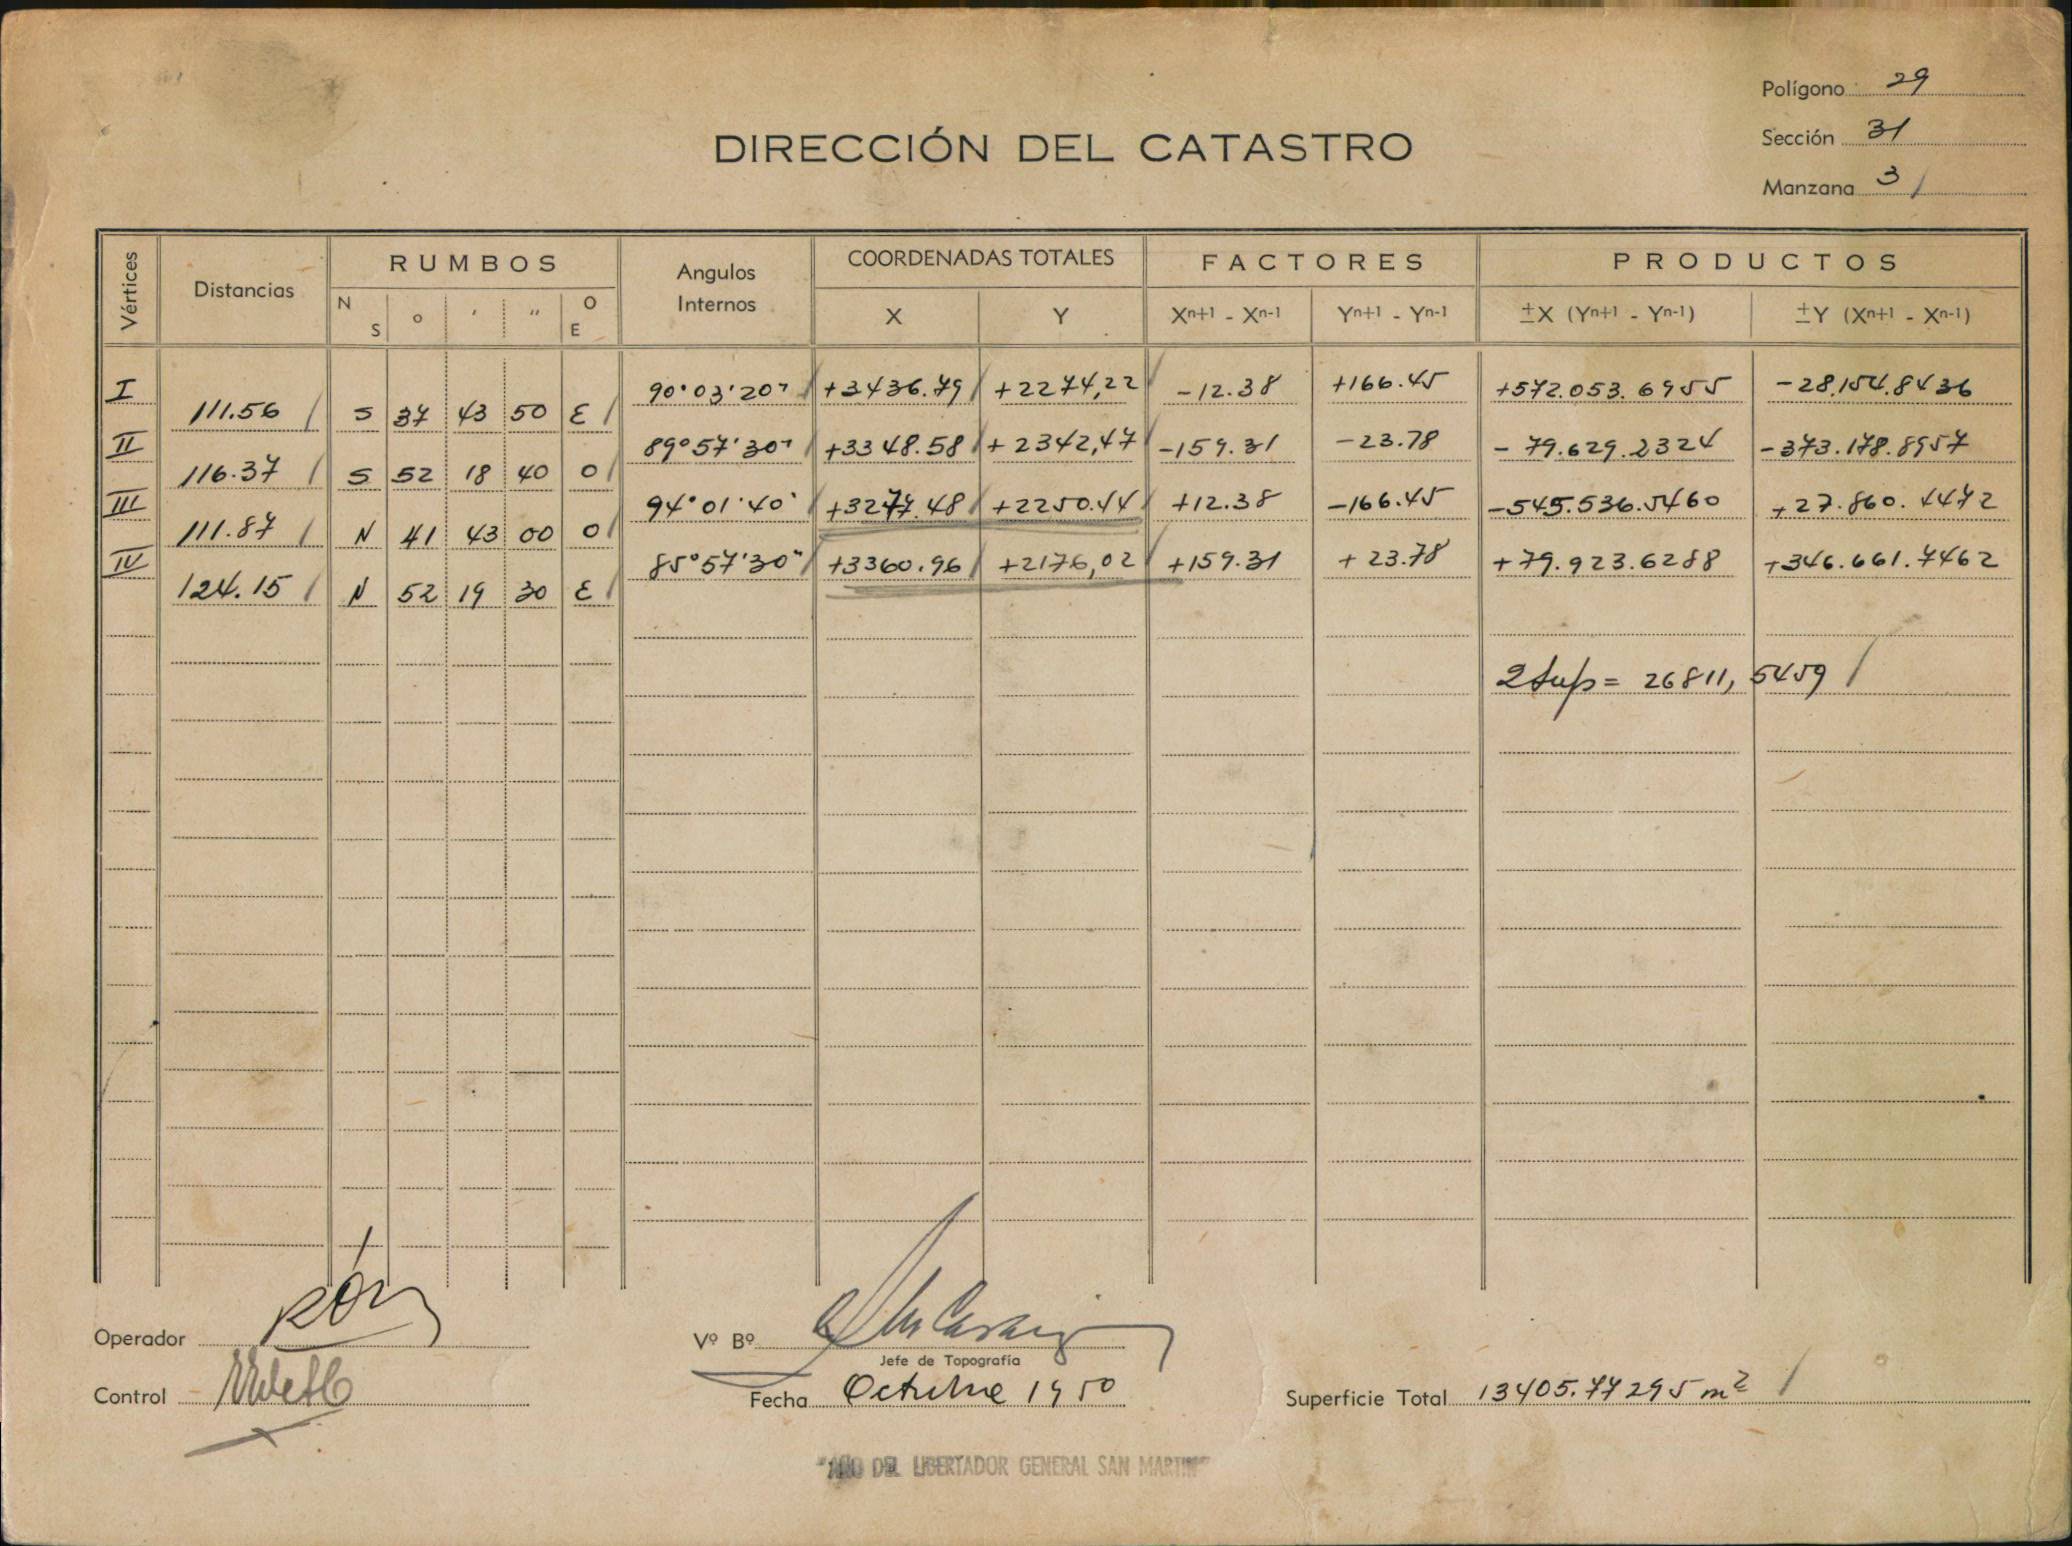 Polígono 29
Sección 31
Manzana 3
DIRECCIÓN DEL CATASTRO
Vértices Distancias RUMBOS Angulos Internos COORDENADAS TOTALES FACTORES PRODUCTOS
N S ° ' " O E X Y Xn+1 - Xn-1 Yn+1 - Yn-1 ±X (Yn+1 - Yn-1) ±Y (Xn+1 - Xn-1)
I 90°03'20" +3436.79 +2274,22 -12.38 +166.45 +572.053.6955 -28.154.8436
111.56 S 37 43 50 E
II 89°57'30" +3348.58 +2342,47 -159.31 -23.78 -79.629.2324 -373.178.8957
116.37 S 52 18 40 O
III 94°01'40" +3277.48 +2250.44 +12.38 -166.45 -545.536.5460 +27.860.4472
111.87 N 41 43 00 O
IV 85°57'30" +3360.96 +2176,02 +159.31 +23.78 +79.923.6288 +346.661.7462
124.15 N 52 19 30 E
2 Sup = 26811,5459
Operador
Vº Bº
Jefe de Topografía
Control
Fecha Octubre 1950
Superficie Total 13405.77295 m²
"AÑO DEL LIBERTADOR GENERAL SAN MARTIN"